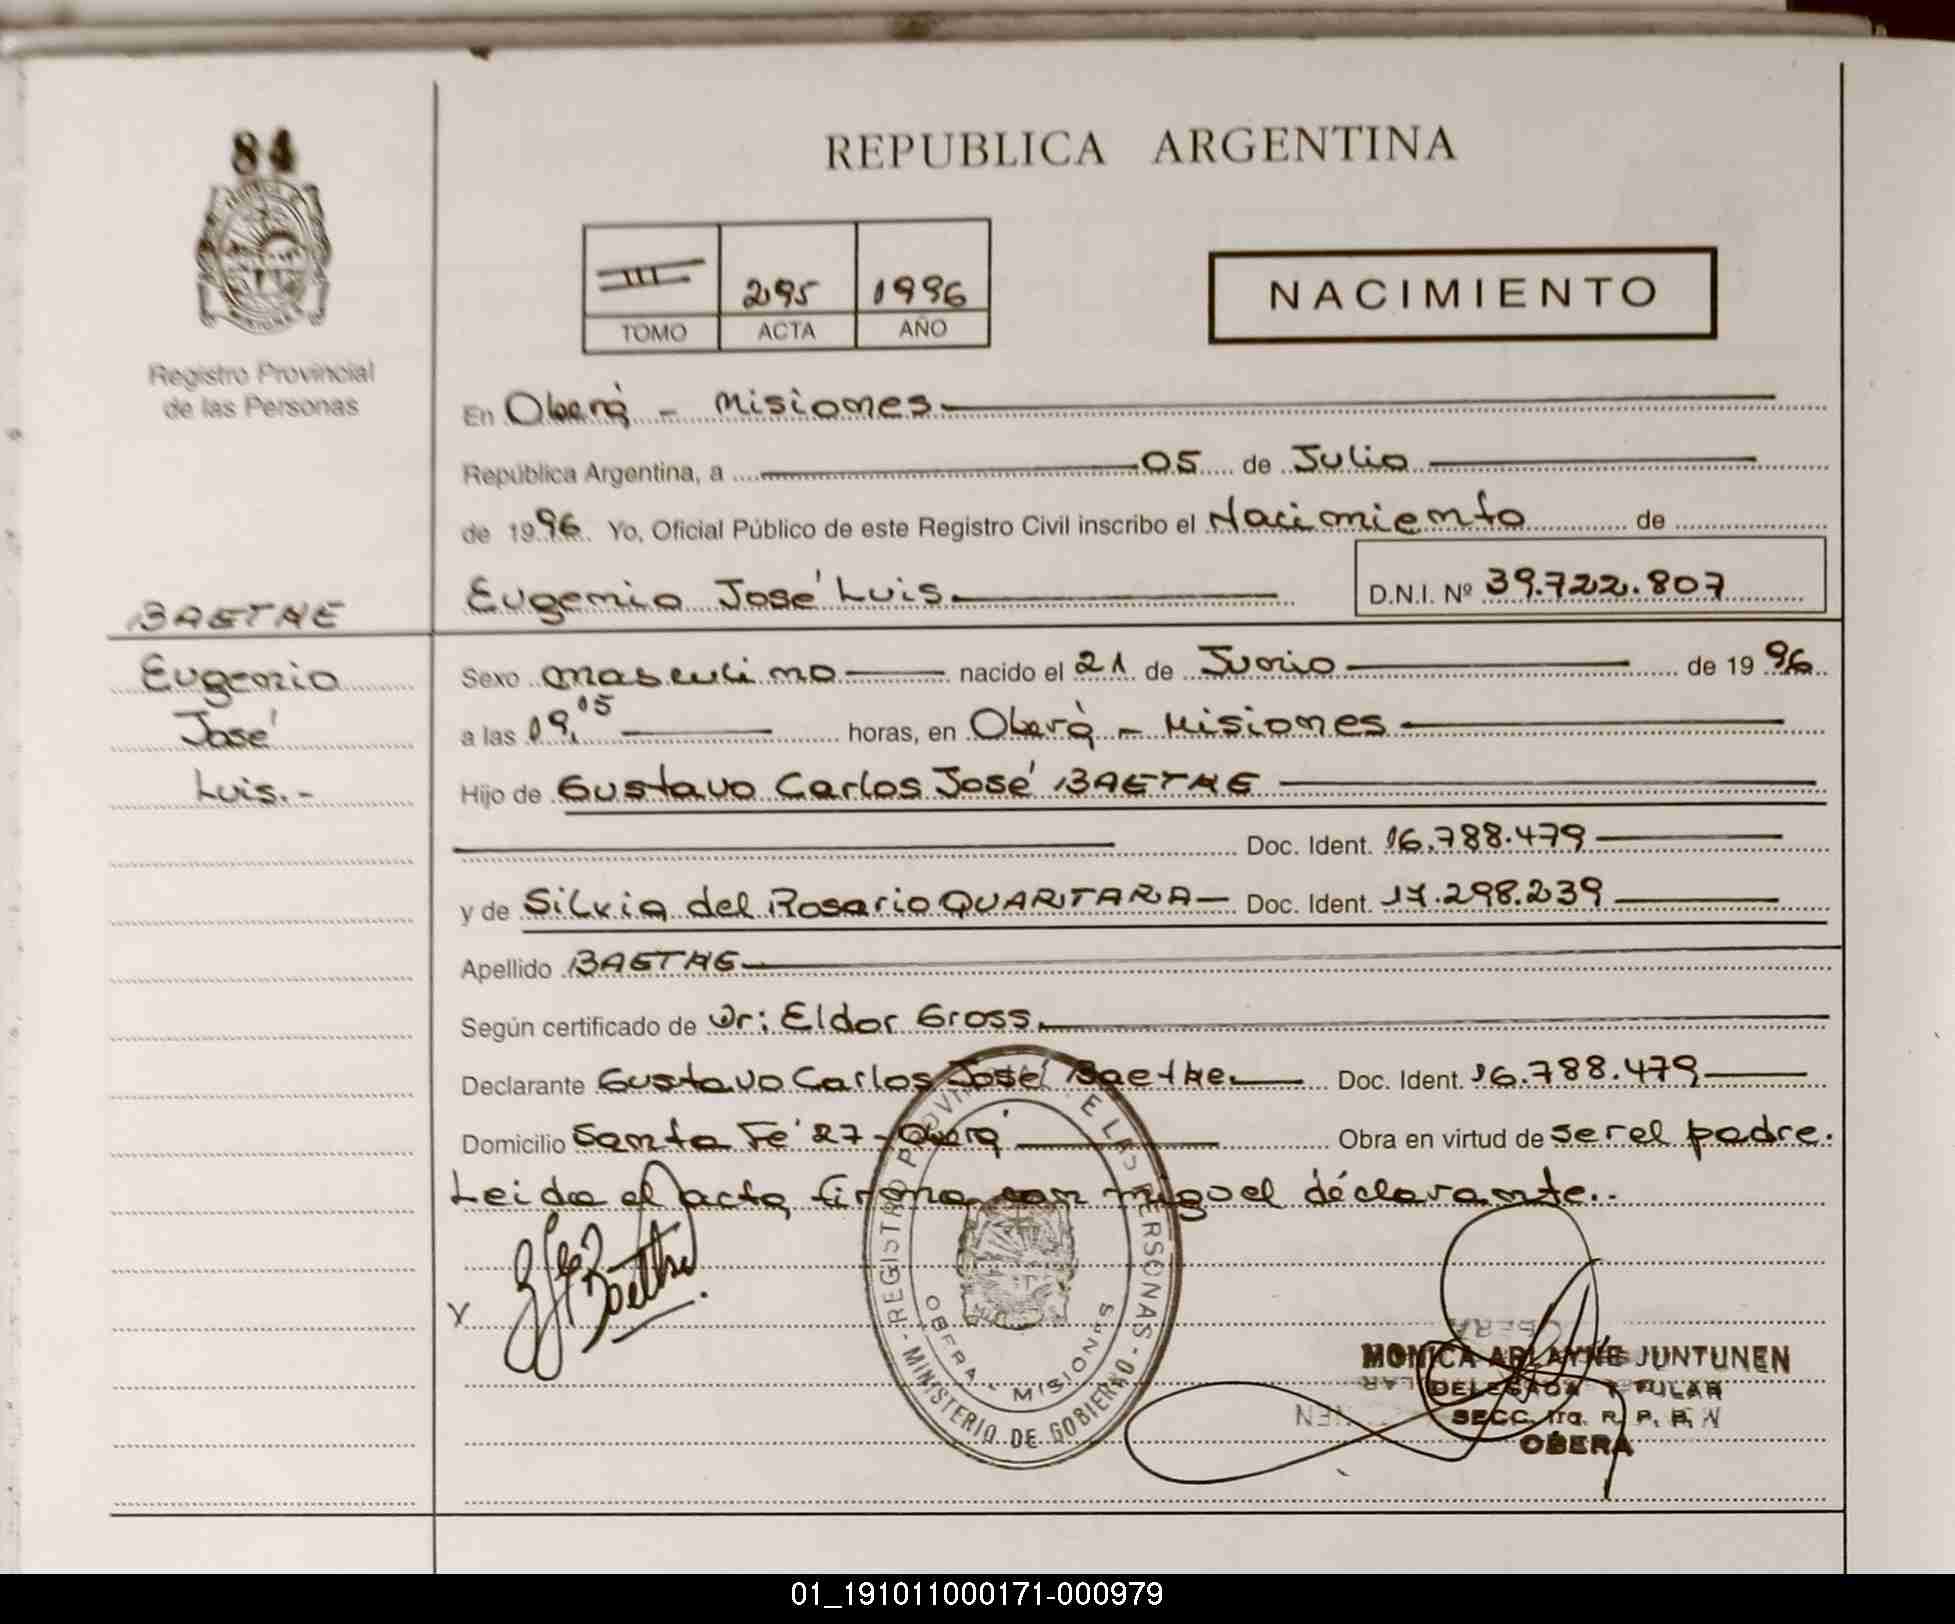 84
Registro Provincial
de las Personas
REPUBLICA ARGENTINA
III 295 1996
TOMO ACTA AÑO
NACIMIENTO
En Oberá - Misiones
República Argentina, a 05 de Julio
de 1996. Yo, Oficial Público de este Registro Civil inscribo el Nacimiento de
Eugenio José Luis
D.N.I. Nº 39.722.807
BAETHE
Eugenio
José
Luis.-
Sexo masculino nacido el 21 de Junio de 1996
a las 09,05 horas, en Oberá - Misiones
Hijo de Gustavo Carlos José BAETHE
Doc. Ident. 16.788.479
y de Silvia del Rosario QUARITARA Doc. Ident. 17.298.239
Apellido BAETHE
Según certificado de Dr: Eldor Gross.
Declarante Gustavo Carlos José Baethe. Doc. Ident. 16.788.479
Domicilio Santa Fé 27 - Oberá Obra en virtud de ser el padre.
Leida el acta, firma con migo el déclarante..
X Baethe.
REGISTRO PROVINCIAL DE LAS PERSONAS - MINISTERIO DE GOBIERNO -
OBERA - MISIONES
MONICA ARLAYNE JUNTUNEN
DELEGADA TITULAR
SECC. 1ra. R. P. P.
OBERA
01_191011000171-000979